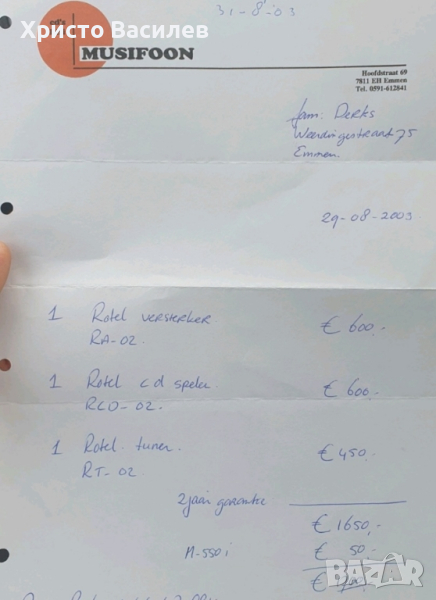 Христо Василев
31-8-03
cd's
MUSIFOON
Hoofdstraat 69
7811 EH Emmen
Tel. 0591-612841
fam. Derks
Weerdingestraat 75
Emmen.
29-08-2003
1 Rotel versterker € 600,-
RA-02.
1 Rotel cd speler € 600,-
RCD-02.
1 Rotel tuner. € 450,-
RT-02.
2 jaar garantie
€ 1650,-
M-550i € 50,-
€
BAZAR